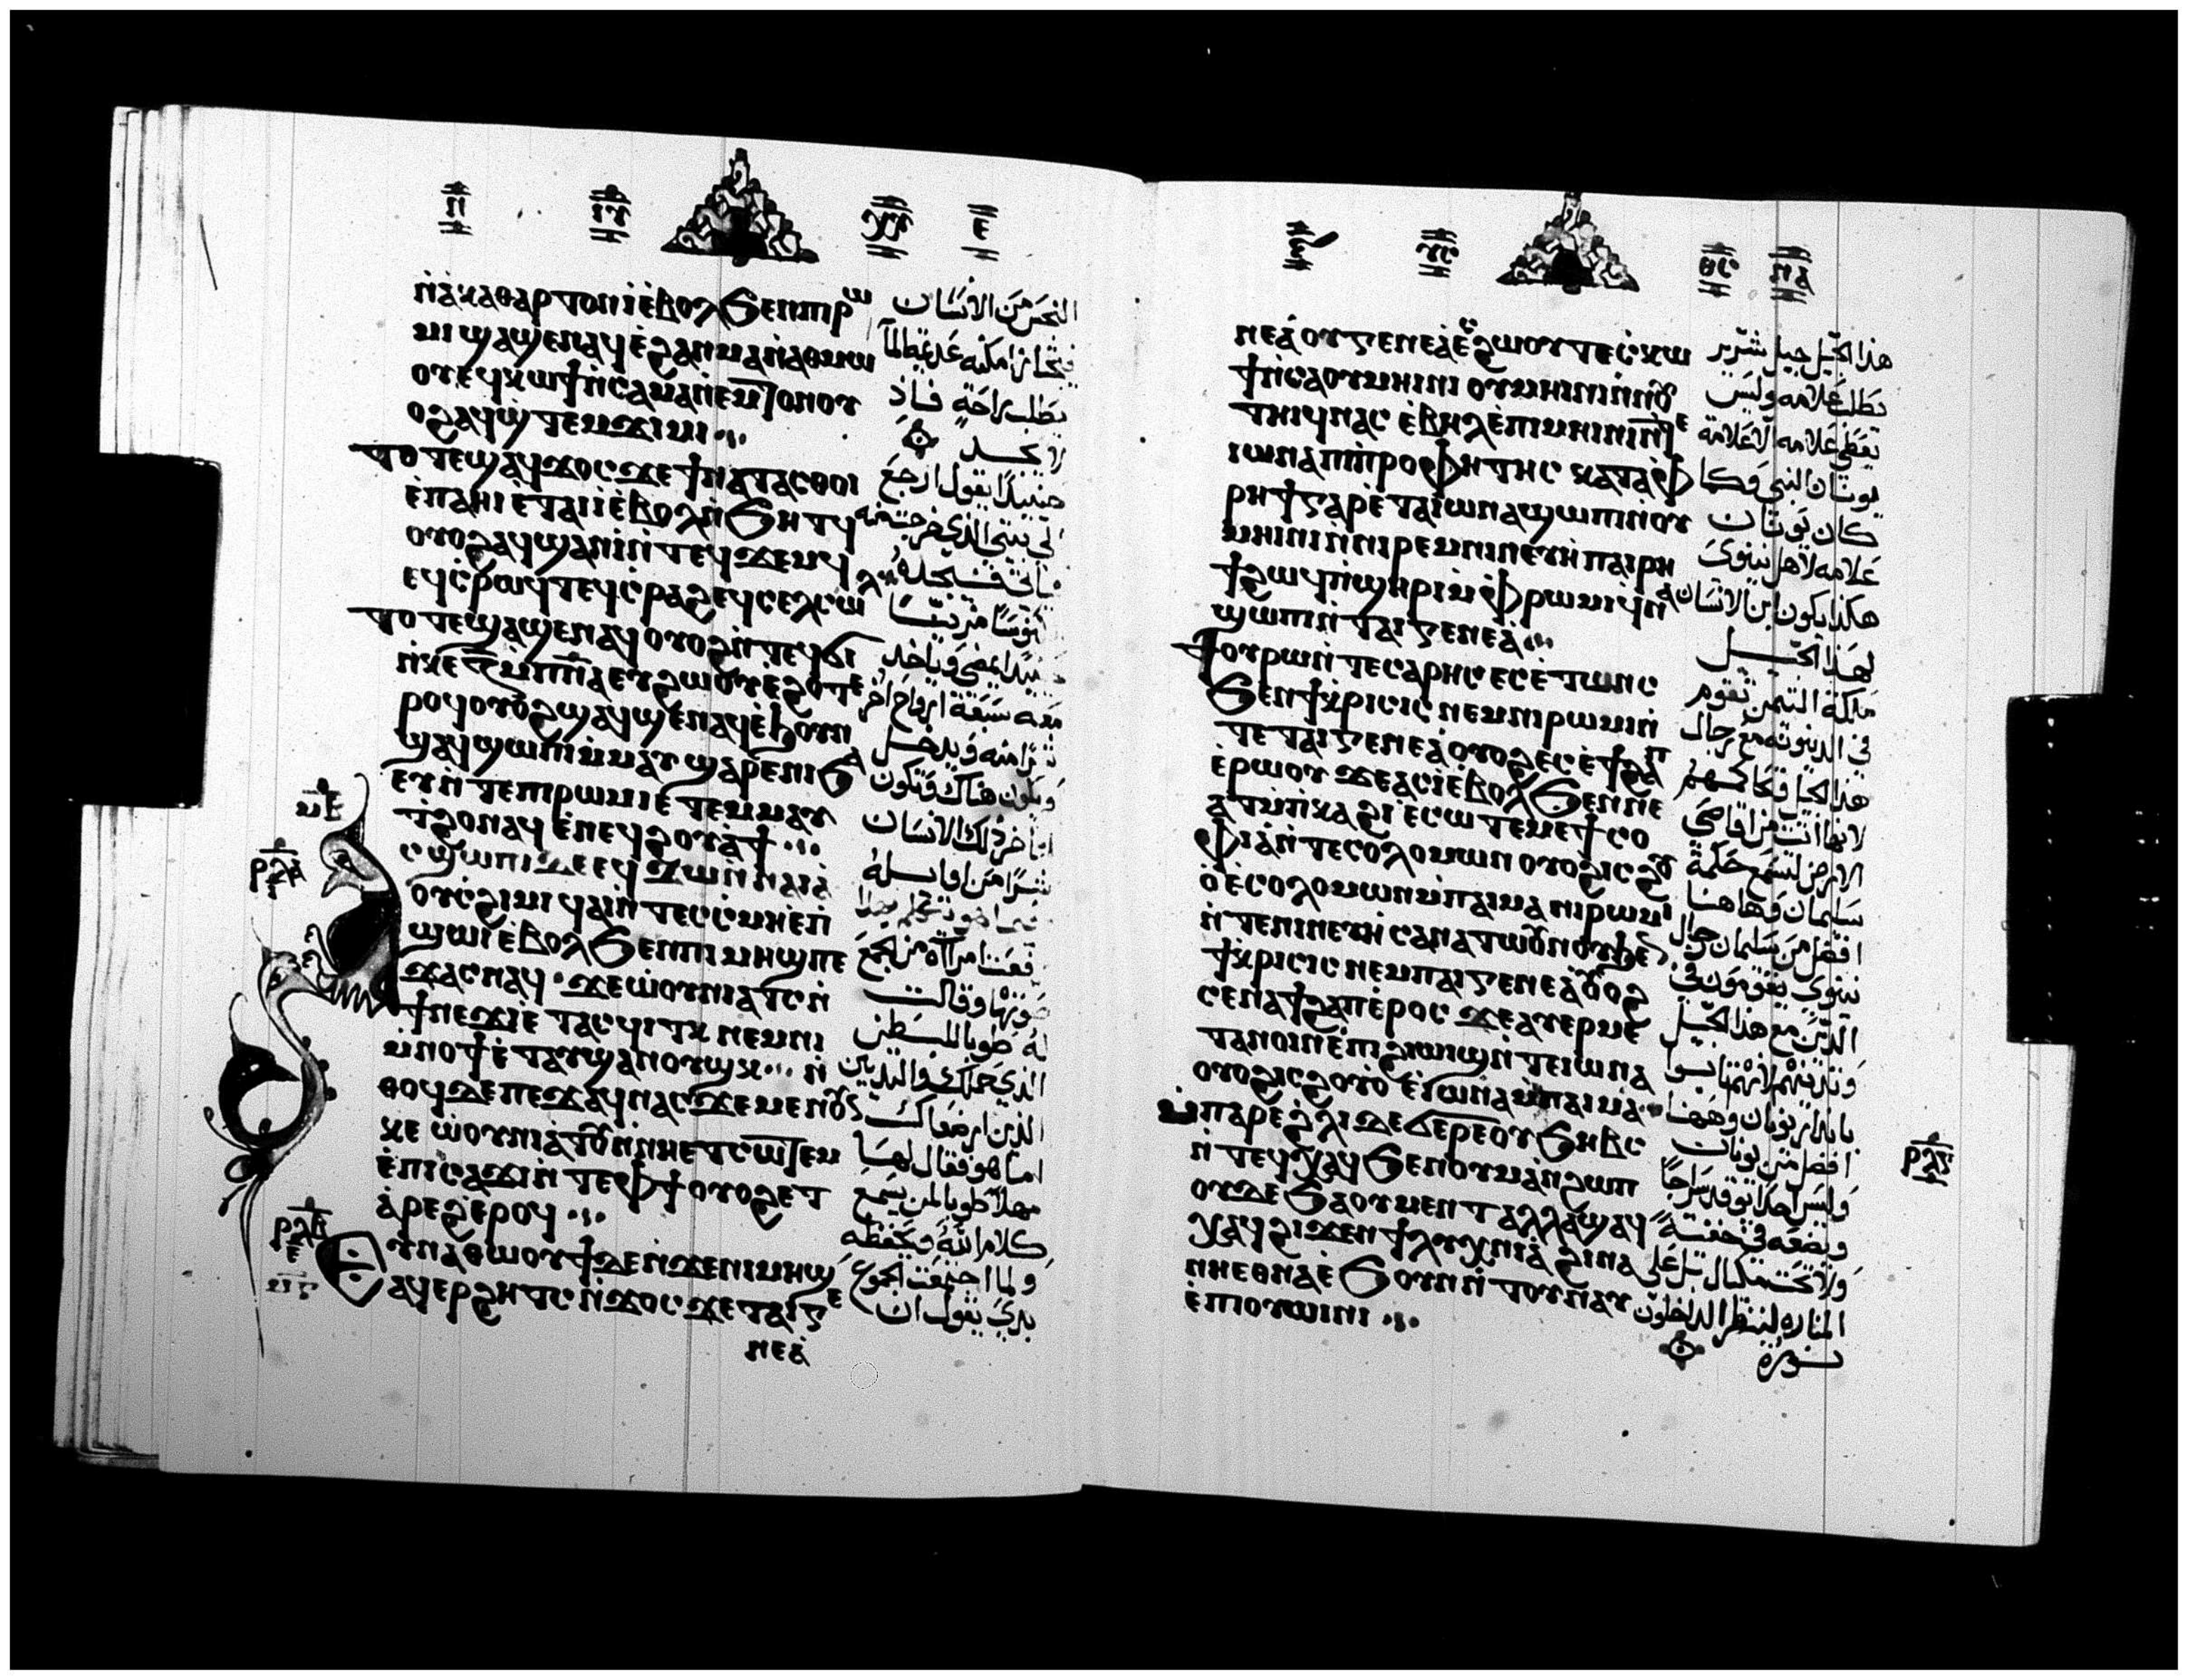 ⲛ̀ⲁ̀ⲕⲁⲑⲁⲣⲧⲟⲛ ⲓ̀ ⲉ̀ⲃⲟⲗ ϧⲉⲛ ⲡⲓⲣⲱ
ⲙⲓ ϣⲁϥϣⲉⲛⲁϥ ⲉ̀ϩⲁⲛⲙⲁ ⲛ̀ⲁⲑⲙⲱ
ⲟⲩ ⲉϥⲕⲱϯ ⲛ̀ⲥⲁ ⲙⲁ ⲛ̀ⲉⲙⲧⲟⲛ ⲟⲩ
ⲟϩ ⲁϥϣ̀ⲧⲉⲙϫⲓⲙⲓ
ⲧⲟⲧⲉ ϣⲁϥϫⲟⲥ ϫⲉ ϯⲛⲁⲧⲁⲥⲑⲟⲓ
ⲉ̀ⲡⲁⲏⲓ ⲉⲧⲁⲓⲓ̀ ⲉ̀ⲃⲟⲗ ⲛ̀ϧⲏⲧϥ
ⲟⲩⲟϩ ⲁϥϣⲁⲛⲓ̀ ⲛ̀ⲧⲉϥϫⲉⲙϥ
ⲉϥⲥ̀ⲣⲱϥⲧ ⲉϥⲥ̀ⲣⲁϩ ⲉϥⲥⲉⲗⲥⲱⲗ
ⲧⲟⲧⲉ ϣⲁϥϣⲉⲛⲁϥ ⲟⲩⲟϩ ⲛ̀ⲧⲉϥϭⲓ
ⲛ̀ⲕⲉ ⲍ̅ ⲙ̀ⲡ̅ⲛ̅ⲁ̅ ⲉⲩϩⲱⲟⲩ ⲉ̀ϩⲟⲧⲉ
ⲣⲟϥ ⲟⲩⲟϩ ϣⲁϥϣⲉⲛⲁϥ ⲉ̀ϧⲟⲩⲛ
ϣⲁϥϣⲱⲡⲓ ⲙ̀ⲙⲁⲩ ϣⲁⲣⲉ ⲛⲓϧⲁ
ⲉⲩ ⲛ̀ⲧⲉ ⲡⲓⲣⲱⲙⲓ ⲉ̀ⲧⲉⲙⲙⲁⲩ
ⲧ̀ϩⲟ ⲛⲁϥ ⲉ̀ⲛⲉϥϩⲟⲩⲁϯ
ⲁⲥϣⲱⲡⲓ ⲇⲉ ⲉϥϫⲱ ⲛ̀ⲛⲁⲓ ⲁ̀
ⲟⲩⲥ̀ϩⲓⲙⲓ ϥⲁⲓ ⲛ̀ⲧⲉⲥⲥ̀ⲙⲏ ⲉ̀ⲡ
ϣⲱⲓ ⲉ̀ⲃⲟⲗ ϧⲉⲛ ⲡⲓⲙⲏϣ ⲡⲉ
ϫⲁⲥ ⲛⲁϥ ϫⲉ ⲱⲟⲩⲛⲓⲁⲧⲥ ⲛ̀
ϯⲛⲉϫⲓ ⲉ̀ⲧⲁⲥϥⲓⲧⲕ ⲛⲉⲙ ⲛⲓ
ⲙⲛⲟϯ ⲉ̀ⲧⲁⲩϣⲁⲛⲟⲩϣⲕ ⲛ̀
ⲑⲟϥ ⲇⲉ ⲡⲉϫⲁϥ ⲛⲁⲥ ϫⲉ ⲙⲉⲛⲟⲩⲛ
ⲅⲉ ⲱⲟⲩⲛⲓⲁⲧⲟⲩ ⲛ̀ⲛⲏⲉⲧⲥⲱⲧⲉⲙ
ⲉ̀ⲡⲓⲥⲁϫⲓ ⲛ̀ⲧⲉ ⲫϯ ⲟⲩⲟϩ ⲉⲧ
ⲁ̀ⲣⲉϩ ⲉ̀ⲣⲟϥ
ⲉⲩⲛⲁⲑⲱⲟⲩϯ ⲇⲉ ⲛ̀ϫⲉ ⲛⲓⲙⲏϣ
ⲁϥⲉⲣϩⲏⲧⲥ ⲛ̀ϫⲟⲥ ϫⲉ ⲧⲁⲓⲅⲉ
ⲛⲉⲁ̀
النجس من الانسان
يطلب راحة فاذ
لا يجد
حينيذ يقول ارجع
الي بيتي الذي خرجت منه
ويكون هناك وتكون
اواخر ذلك الانسان
شرا من اوايله
له طوبا للبطن
الذي حملك والثديين
الذين ارضعاك
اما هو فقال لها
مهلا طوبا لمن يسمع
كلام الله ويحفظه
ولما اجتمعت الجموع
بدي يقول ان
ⲛⲉⲁ̀ ⲟⲩⲅⲉⲛⲉⲁ̀ ⲉⲥϩⲱⲟⲩ ⲧⲉ ⲥ̀ⲕⲱ
ϯ ⲛ̀ⲥⲁ ⲟⲩⲙⲏⲓⲛⲓ ⲟⲩⲙⲏⲓⲛⲓ ⲛ̀ⲛⲟⲩ
ⲧⲏⲓϥ ⲛⲁⲥ ⲉ̀ⲃⲏⲗ ⲉ̀ⲡⲓⲙⲏⲓⲛⲓ ⲛ̀ⲧⲉ
ⲓⲱⲛⲁ ⲡⲓⲡ̀ⲣⲟⲫⲏⲧⲏⲥ ⲕⲁⲧⲁ ⲫ̀
ⲣⲏϯ ⲅⲁⲣ ⲉ̀ⲧⲁ ⲓⲱⲛⲁ ϣⲱⲡⲓ ⲛ̀ⲟⲩ
ⲙⲏⲓⲛⲓ ⲛ̀ⲛⲓⲣⲉⲙⲛⲓⲛⲉⲩⲏ̀ ⲡⲁⲓⲣⲏ
ϯ ϩⲱϥ ⲡ̀ϣⲏⲣⲓ ⲙ̀ⲫ̀ⲣⲱⲙⲓ ϥ̀ⲛⲁ
ϣⲱⲡⲓ ⲛ̀ⲧⲁⲓⲅⲉⲛⲉⲁ̀
ϯⲟⲩⲣⲱ ⲛ̀ⲧⲉ ⲥⲁⲣⲏⲥ ⲉⲥⲉ̀ⲧⲱⲛⲥ
ϧⲉⲛ ϯⲕ̀ⲣⲓⲥⲓⲥ ⲛⲉⲙ ⲛⲓⲣⲱⲙⲓ ⲛ̀
ⲧⲉ ⲧⲁⲓⲅⲉⲛⲉⲁ̀ ⲟⲩⲟϩ ⲉⲥⲉ̀ϯϩⲁⲡ
ⲉ̀ⲣⲱⲟⲩ ϫⲉ ⲁⲥⲓ̀ ⲉ̀ⲃⲟⲗ ϧⲉⲛ ⲛⲉ
ⲁⲧⲙ̀ⲡⲕⲁϩⲓ ⲉ̀ⲥⲱⲧⲉⲙ ⲉ̀ϯⲥⲟ
ⲫⲓⲁ̀ ⲛ̀ⲧⲉ ⲥⲟⲗⲟⲙⲱⲛ ⲟⲩⲟϩ ⲓⲥ ϩⲟⲩ
ⲟ̀ ⲉ̀ⲥⲟⲗⲟⲙⲱⲛ ⲙ̀ⲡⲁⲓⲙⲁ ⲛⲓⲣⲱⲙⲓ
ⲛ̀ⲧⲉ ⲛⲓⲛⲉⲩⲏ̀ ⲥⲉⲛⲁⲧⲱⲟⲩⲛⲟⲩ ϧⲉⲛ
ϯⲕ̀ⲣⲓⲥⲓⲥ ⲛⲉⲙ ⲡⲁⲓⲅⲉⲛⲉⲁ̀ ⲟⲩⲟϩ
ⲥⲉⲛⲁϯϩⲁⲡ ⲉ̀ⲣⲟⲥ ϫⲉ ⲁⲩⲉⲣⲙⲉ
ⲧⲁⲛⲟⲓⲛ ⲉ̀ⲡⲓϩⲓⲱⲓϣ ⲛ̀ⲧⲉ ⲓⲱⲛⲁ
ⲟⲩⲟϩ ⲓⲥ ϩⲟⲩⲟ̀ ⲉ̀ⲓⲱⲛⲁ ⲙ̀ⲡⲁⲓⲙⲁ
ⲙ̀ⲡⲁⲣⲉ ϩ̀ⲗⲓ ⲇⲉ ϭⲉⲣⲉ ⲟⲩϧⲏⲃⲥ
ⲛ̀ⲧⲉϥⲭⲁϥ ϧⲉⲛ ⲟⲩⲙⲁ ⲛ̀ϩⲱⲡ
ⲟⲩⲇⲉ ϧⲁ ⲟⲩⲙⲉⲛⲧ ⲁⲗⲗⲁ ϣⲁϥ
ⲭⲁϥ ϩⲓϫⲉⲛ ϯⲗⲩⲭⲛⲓⲁ̀ ϩⲓⲛⲁ
ⲛⲏⲉⲑⲛⲁ ⲉ̀ϧⲟⲩⲛ ⲛ̀ⲧⲟⲩⲛⲁⲩ
ⲉ̀ⲡⲓⲟⲩⲱⲓⲛⲓ
هذا الجيل جيل شرير
يطلب علامه وليس
يعطي علامه الا علامة
يونان النبي وكما
كان يونان
علامه لاهل نينوي
هكذا يكون ابن الانسان
لهذا الجيل
ملكة التيمن تقوم
في الدينونه مع رجال
هذا الجيل وتحاكمهم
لانها اتت من اقاصي
الارض لتسمع حكمة
سليمان وهاهنا
افضل من سليمان رجال
نينوي يقومون في
الدين مع هذا الجيل
بانذار يونان وههنا
افضل من يونان
وليس احد يوقد سراجا
ولا تحت مكيال بل علي
المناره لينظر الداخلون
نوره